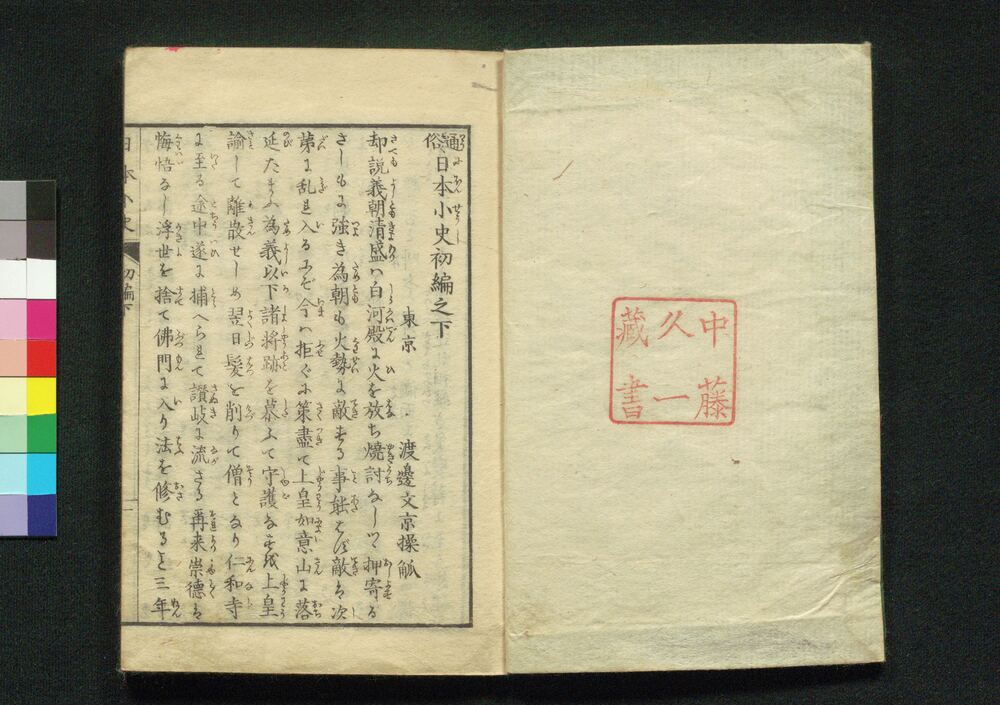 中藤
久一
藏書
通俗日本小史初編之下
東京 渡邊文京操觚
却説義朝清盛ハ白河殿に火を放ち焼討なしつゝ押寄る
さしもに強き為朝も火勢に敵する事能はず敵は次
第に乱れ入るにぞ今ハ拒ぐに策盡て上皇如意山に落
延たまふ為義以下諸将跡を慕ふて守護なすを上皇
諭して離散せしめ翌日髪を削りて僧となり仁和寺
に至る途中遂に捕へられて讃岐に流さる再来崇徳は
悔悟なし浮世を捨て佛門に入り法を修むること三年
日本小史 初編下